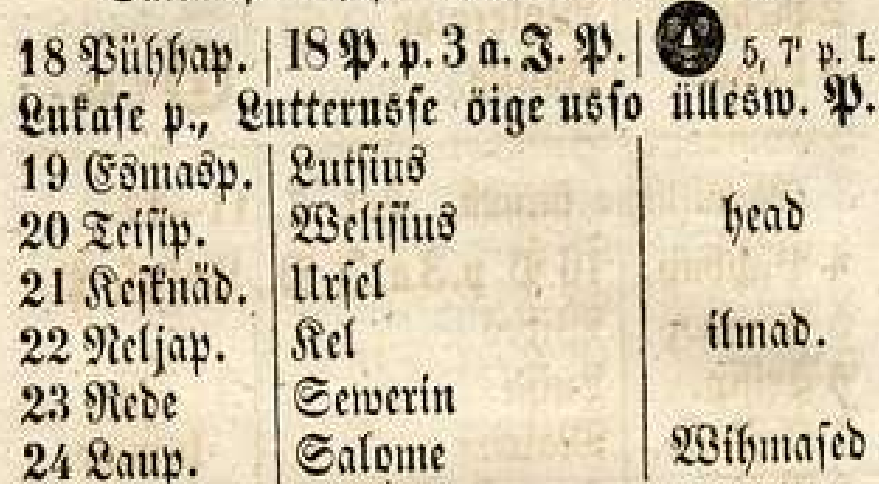 18 Pühhap. | 18 P. p. 3 a. J. P. | 5, 7' p. l.
Lukase p., Lutterusse öige usso üllesw. P.
19 Esmasp. | Lutsius
20 Teisip. | Welisius head
21 Kesknäd. | Ursel
22 Neljap. | Kel ilmad.
23 Rede | Sewerin
24 Laup. | Salome Wihmased